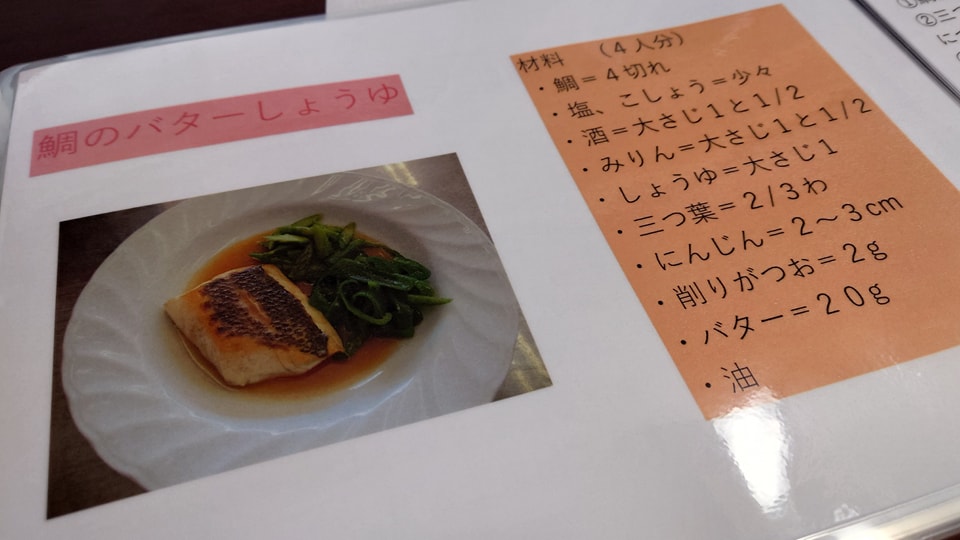 鯛のバターしょうゆ
材料　（４人分）
・鯛＝４切れ
・塩、こしょう＝少々
・酒＝大さじ１と１/２
・みりん＝大さじ１と１/２
・しょうゆ＝大さじ１
・三つ葉＝２/３わ
・にんじん＝２～３cm
・削りがつお＝２g
・バター＝２０g
・油